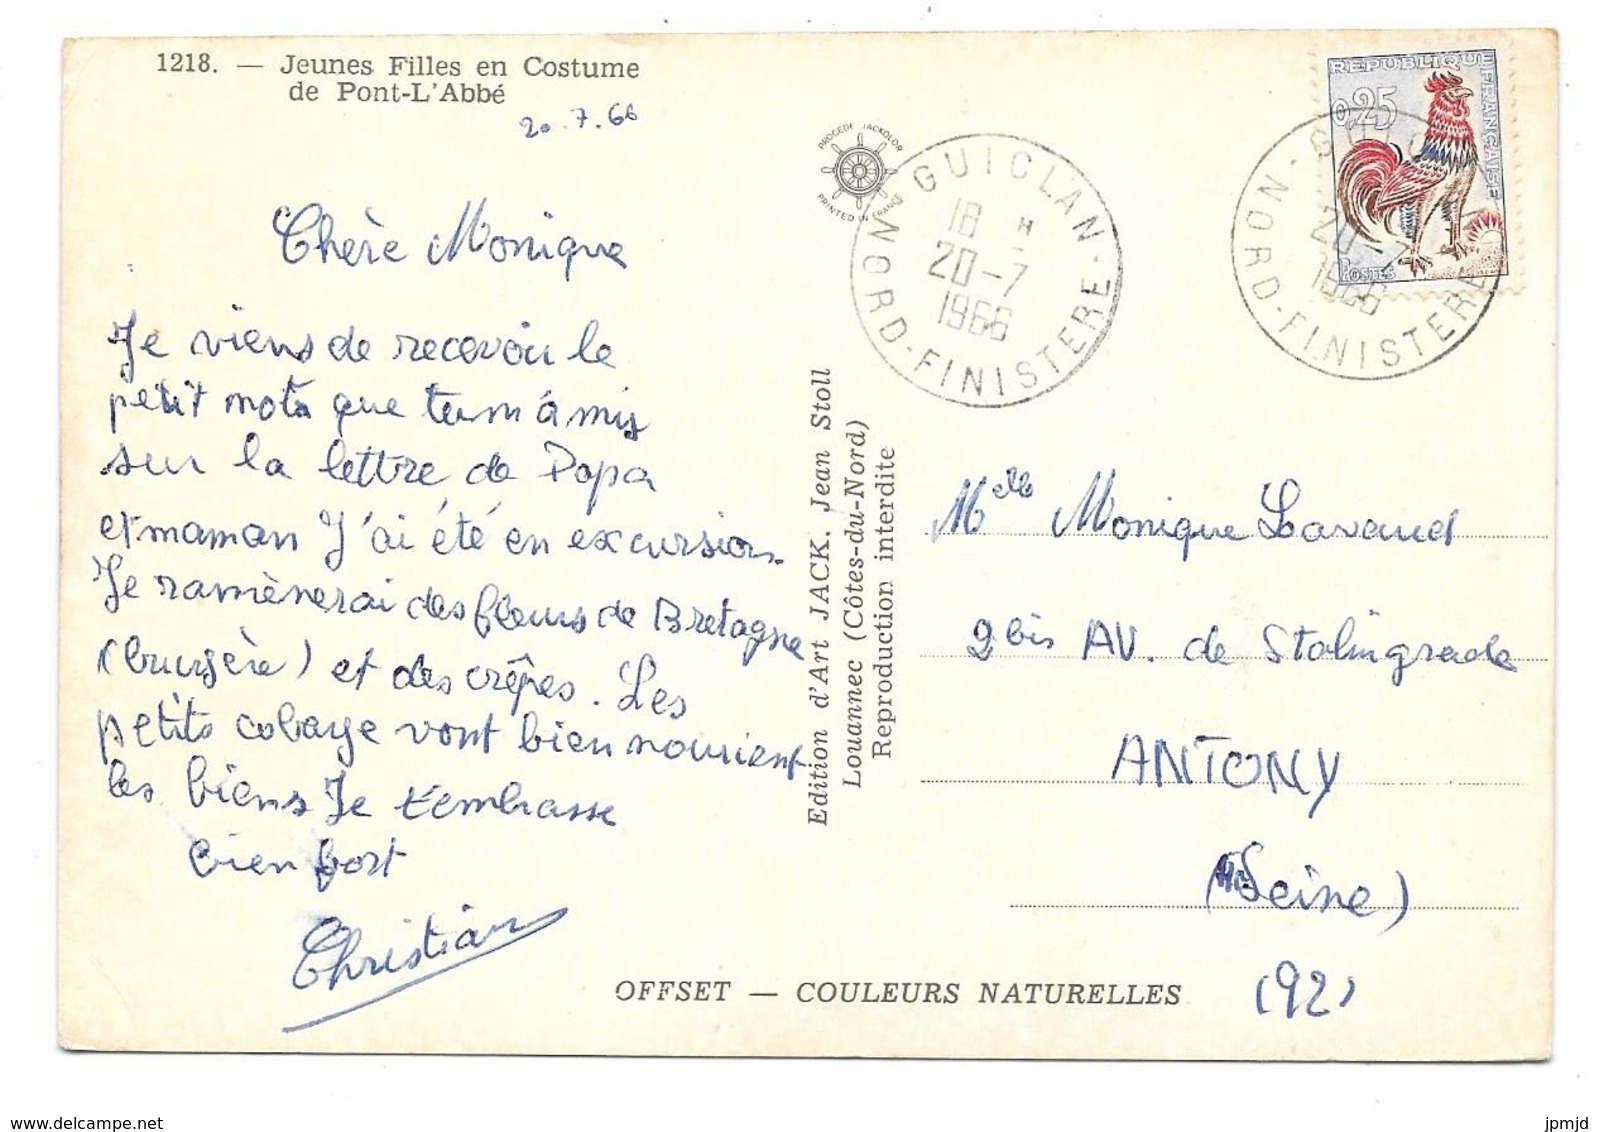 1218. — Jeunes Filles en Costume
de Pont-L'Abbé
20.7.66
Chère Monique
Je viens de recevoir le
petit mots que tum à mis
sur la lettre de Papa
et maman J'ai été en excursion
Je ramènerai des fleurs de Bretagne
(bruyère) et des crêpes. Les
petits cobaye vont bien nourient
les biens Je t'embrasse
bien fort
Christian
PROCEDE JACKOLOR
PRINTED IN FRANCE
Edition d'Art JACK. Jean Stoll
Louannec (Côtes-du-Nord)
Reproduction interdite
OFFSET — COULEURS NATURELLES
GUICLAN
18 H
20-7
1966
NORD-FINISTERE
REPUBLIQUE FRANCAISE
0,25
POSTES
20-7
1966
NORD-FINISTERE
Melle Monique Lavaud
2 bis AV. de Stalingrade
ANTONY
(Seine)
(92)
delcampe.net
jpmjd